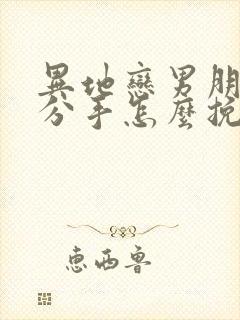 異地戀男朋
分手怎麼挽
惠西魯